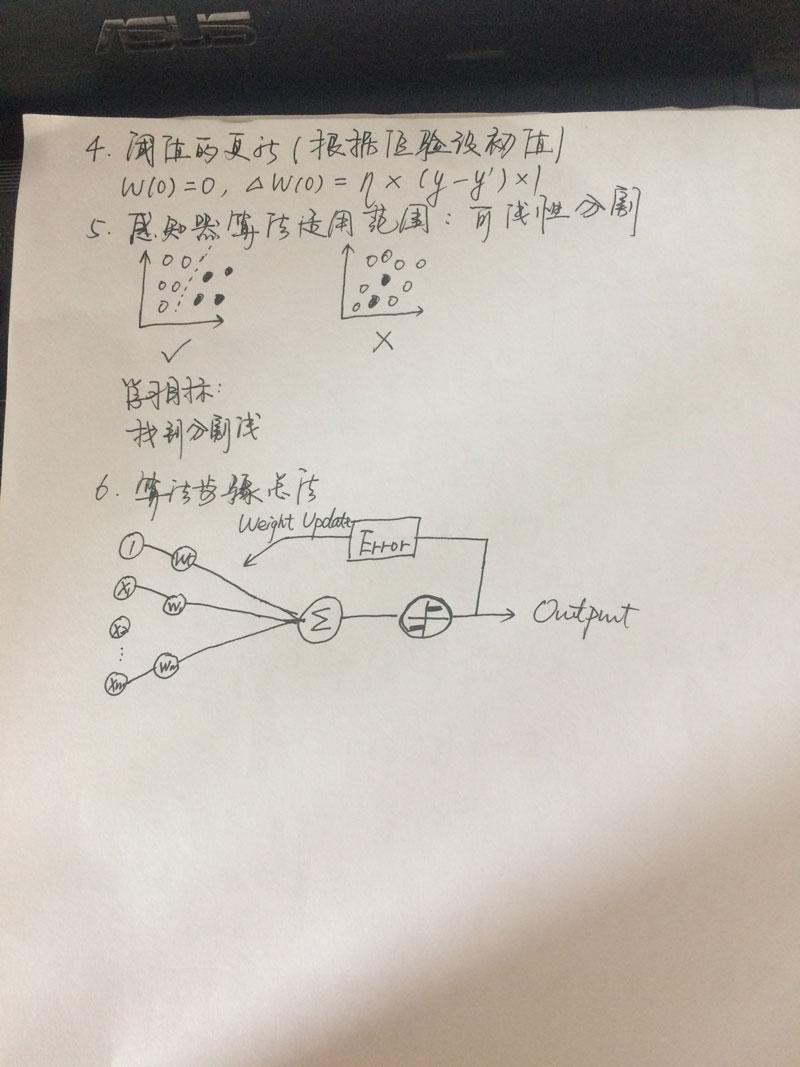 ASUS
4. 阈值的更新(根据经验设初值)
W(0)=0, ΔW(0)=η×(y-y')×1
5. 感知器算法适用范围:可线性分割
✓ ×
学习目标:
找到分割线
6. 算法步骤总结
Weight Update
Error
1
X1 W1
Σ Output
X2
⋮
Xm Wm